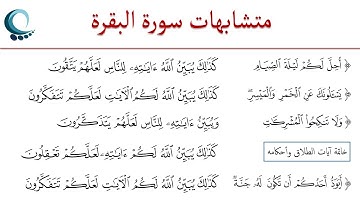 متشابهات سورة البقرة
﴿ أُحِلَّ لَكُمْ لَيْلَةَ الصِّيَامِ كَذَٰلِكَ يُبَيِّنُ اللَّهُ ءَايَاتِهِ لِلنَّاسِ لَعَلَّهُمْ يَتَّقُونَ
﴿ يَسْـَٔلُونَكَ عَنِ الْخَمْرِ وَالْمَيْسِرِ كَذَٰلِكَ يُبَيِّنُ اللَّهُ لَكُمُ الْآيَاتِ لَعَلَّكُمْ تَتَفَكَّرُونَ
﴿ وَلَا تَنكِحُوا الْمُشْرِكَاتِ وَيُبَيِّنُ ءَايَاتِهِ لِلنَّاسِ لَعَلَّهُمْ يَتَذَكَّرُونَ
خاتمة آيات الطلاق وأحكامه كَذَٰلِكَ يُبَيِّنُ اللَّهُ لَكُمْ ءَايَاتِهِ لَعَلَّكُمْ تَعْقِلُونَ
﴿ أَيَوَدُّ أَحَدُكُمْ أَن تَكُونَ لَهُ جَنَّةٌ كَذَٰلِكَ يُبَيِّنُ اللَّهُ لَكُمُ الْآيَاتِ لَعَلَّكُمْ تَتَفَكَّرُونَ